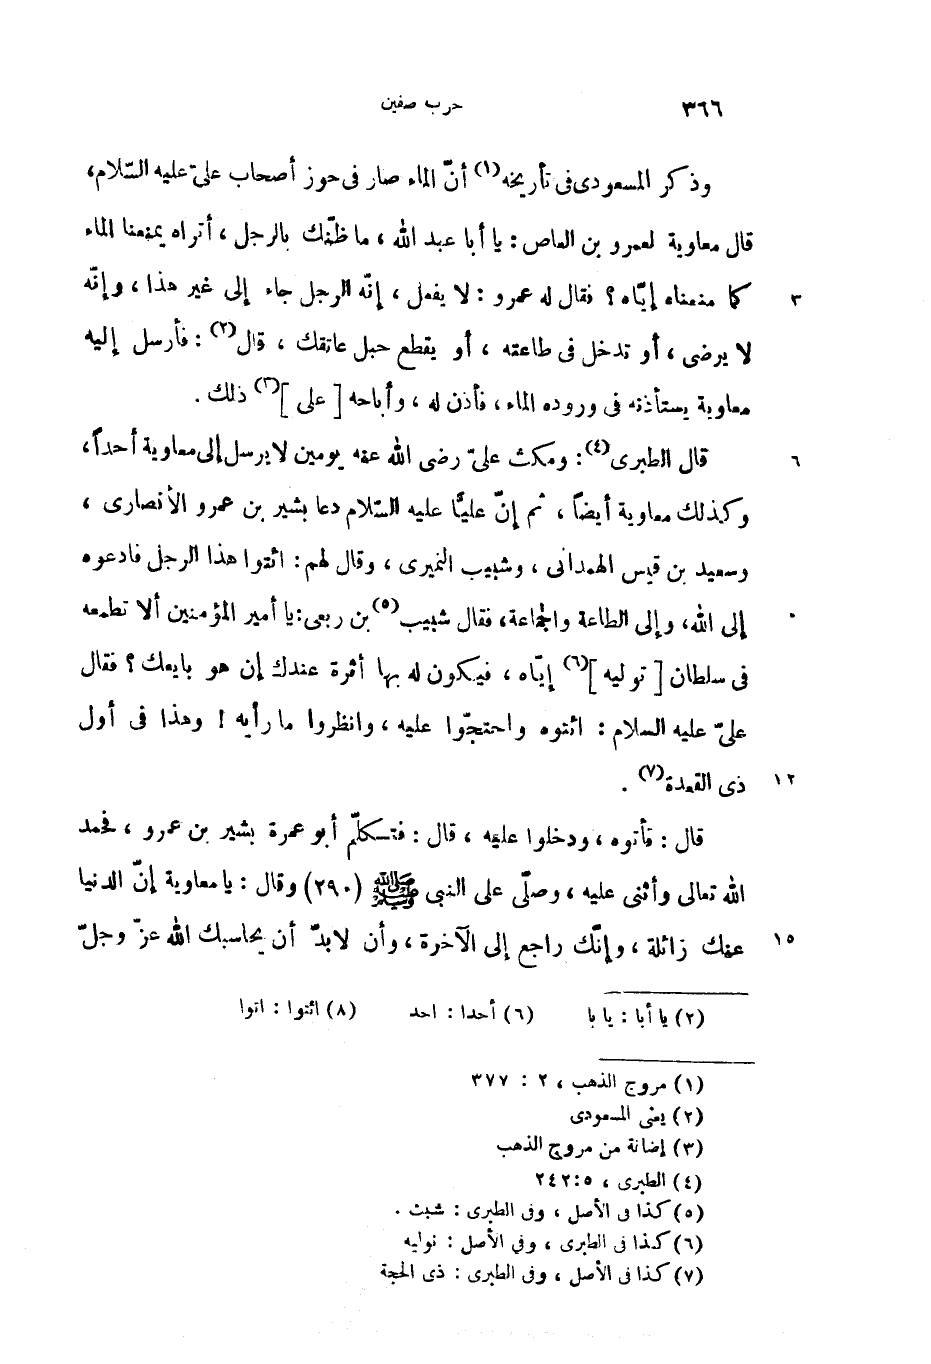 ٣٦٦
حرب صفين
وذكر المسعودى فى تأريخه(١) أنّ الماء صار فى حوز أصحاب علىّ عليه السّلام،
قال معاوية لعمرو بن العاص : يا أبا عبد الله ، ما ظنّك بالرجل ، أتراه يمنعنا الماء
٣ كما منعناه إيّاه ؟ فقال له عمرو : لا يفعل ، إنّه الرجل جاء إلى غير هذا ، وإنّه
لا يرضى ، أو تدخل فى طاعته ، أو يقطع حبل عاتقك ، قال(٢) : فأرسل إليه
معاوية يستأذنه فى وروده الماء ، فأذن له ، وأباحه [ على ](٣) ذلك .
٦ قال الطبرى(٤) : ومكث علىّ رضى الله عنه يومين لا يرسل إلى معاوية أحداً،
وكذلك معاوية أيضاً ، ثم إنّ عليًّا عليه السّلام دعا بشير بن عمرو الأنصارى ،
وسعيد بن قيس الهمدانى ، وشبيب النميرى ، وقال لهم : ائتوا هذا الرجل فادعوه
إلى الله، وإلى الطاعة والجماعة، فقال شبيب(٥) بن ربعى: يا أمير المؤمنين ألا تطمعه
فى سلطان [ توليه ](٦) إيّاه ، فيكون له بها أثرة عندك إن هو بايعك ؟ فقال
علىّ عليه السلام : ائتوه واحتجّوا عليه ، وانظروا ما رأيه ! وهذا فى أول
١٢ ذى القعدة(٧) .
قال : فأتوه ، ودخلوا عليه ، قال : فتكلّم أبو عمرة بشير بن عمرو ، فحمد
الله تعالى وأثنى عليه ، وصلّى على النبى ﷺ (٢٩٠) وقال : يا معاوية إنّ الدنيا
١٥ عنك زائلة ، وإنّك راجع إلى الآخرة ، وأن لا بدّ أن يحاسبك الله عزّ وجلّ
(٢) يا أبا : يا با (٦) أحدا : احد (٨) ائتوا : اتوا
(١) مروج الذهب ، ٢ : ٣٧٧
(٢) يعنى المسعودى
(٣) إضافة من مروج الذهب
(٤) الطبرى ، ٢٤٢:٥
(٥) كذا فى الأصل ، وفى الطبرى : شبث .
(٦) كذا فى الطبرى ، وفي الأصل : نوليه
(٧) كذا فى الأصل ، وفى الطبرى : ذى الحجة